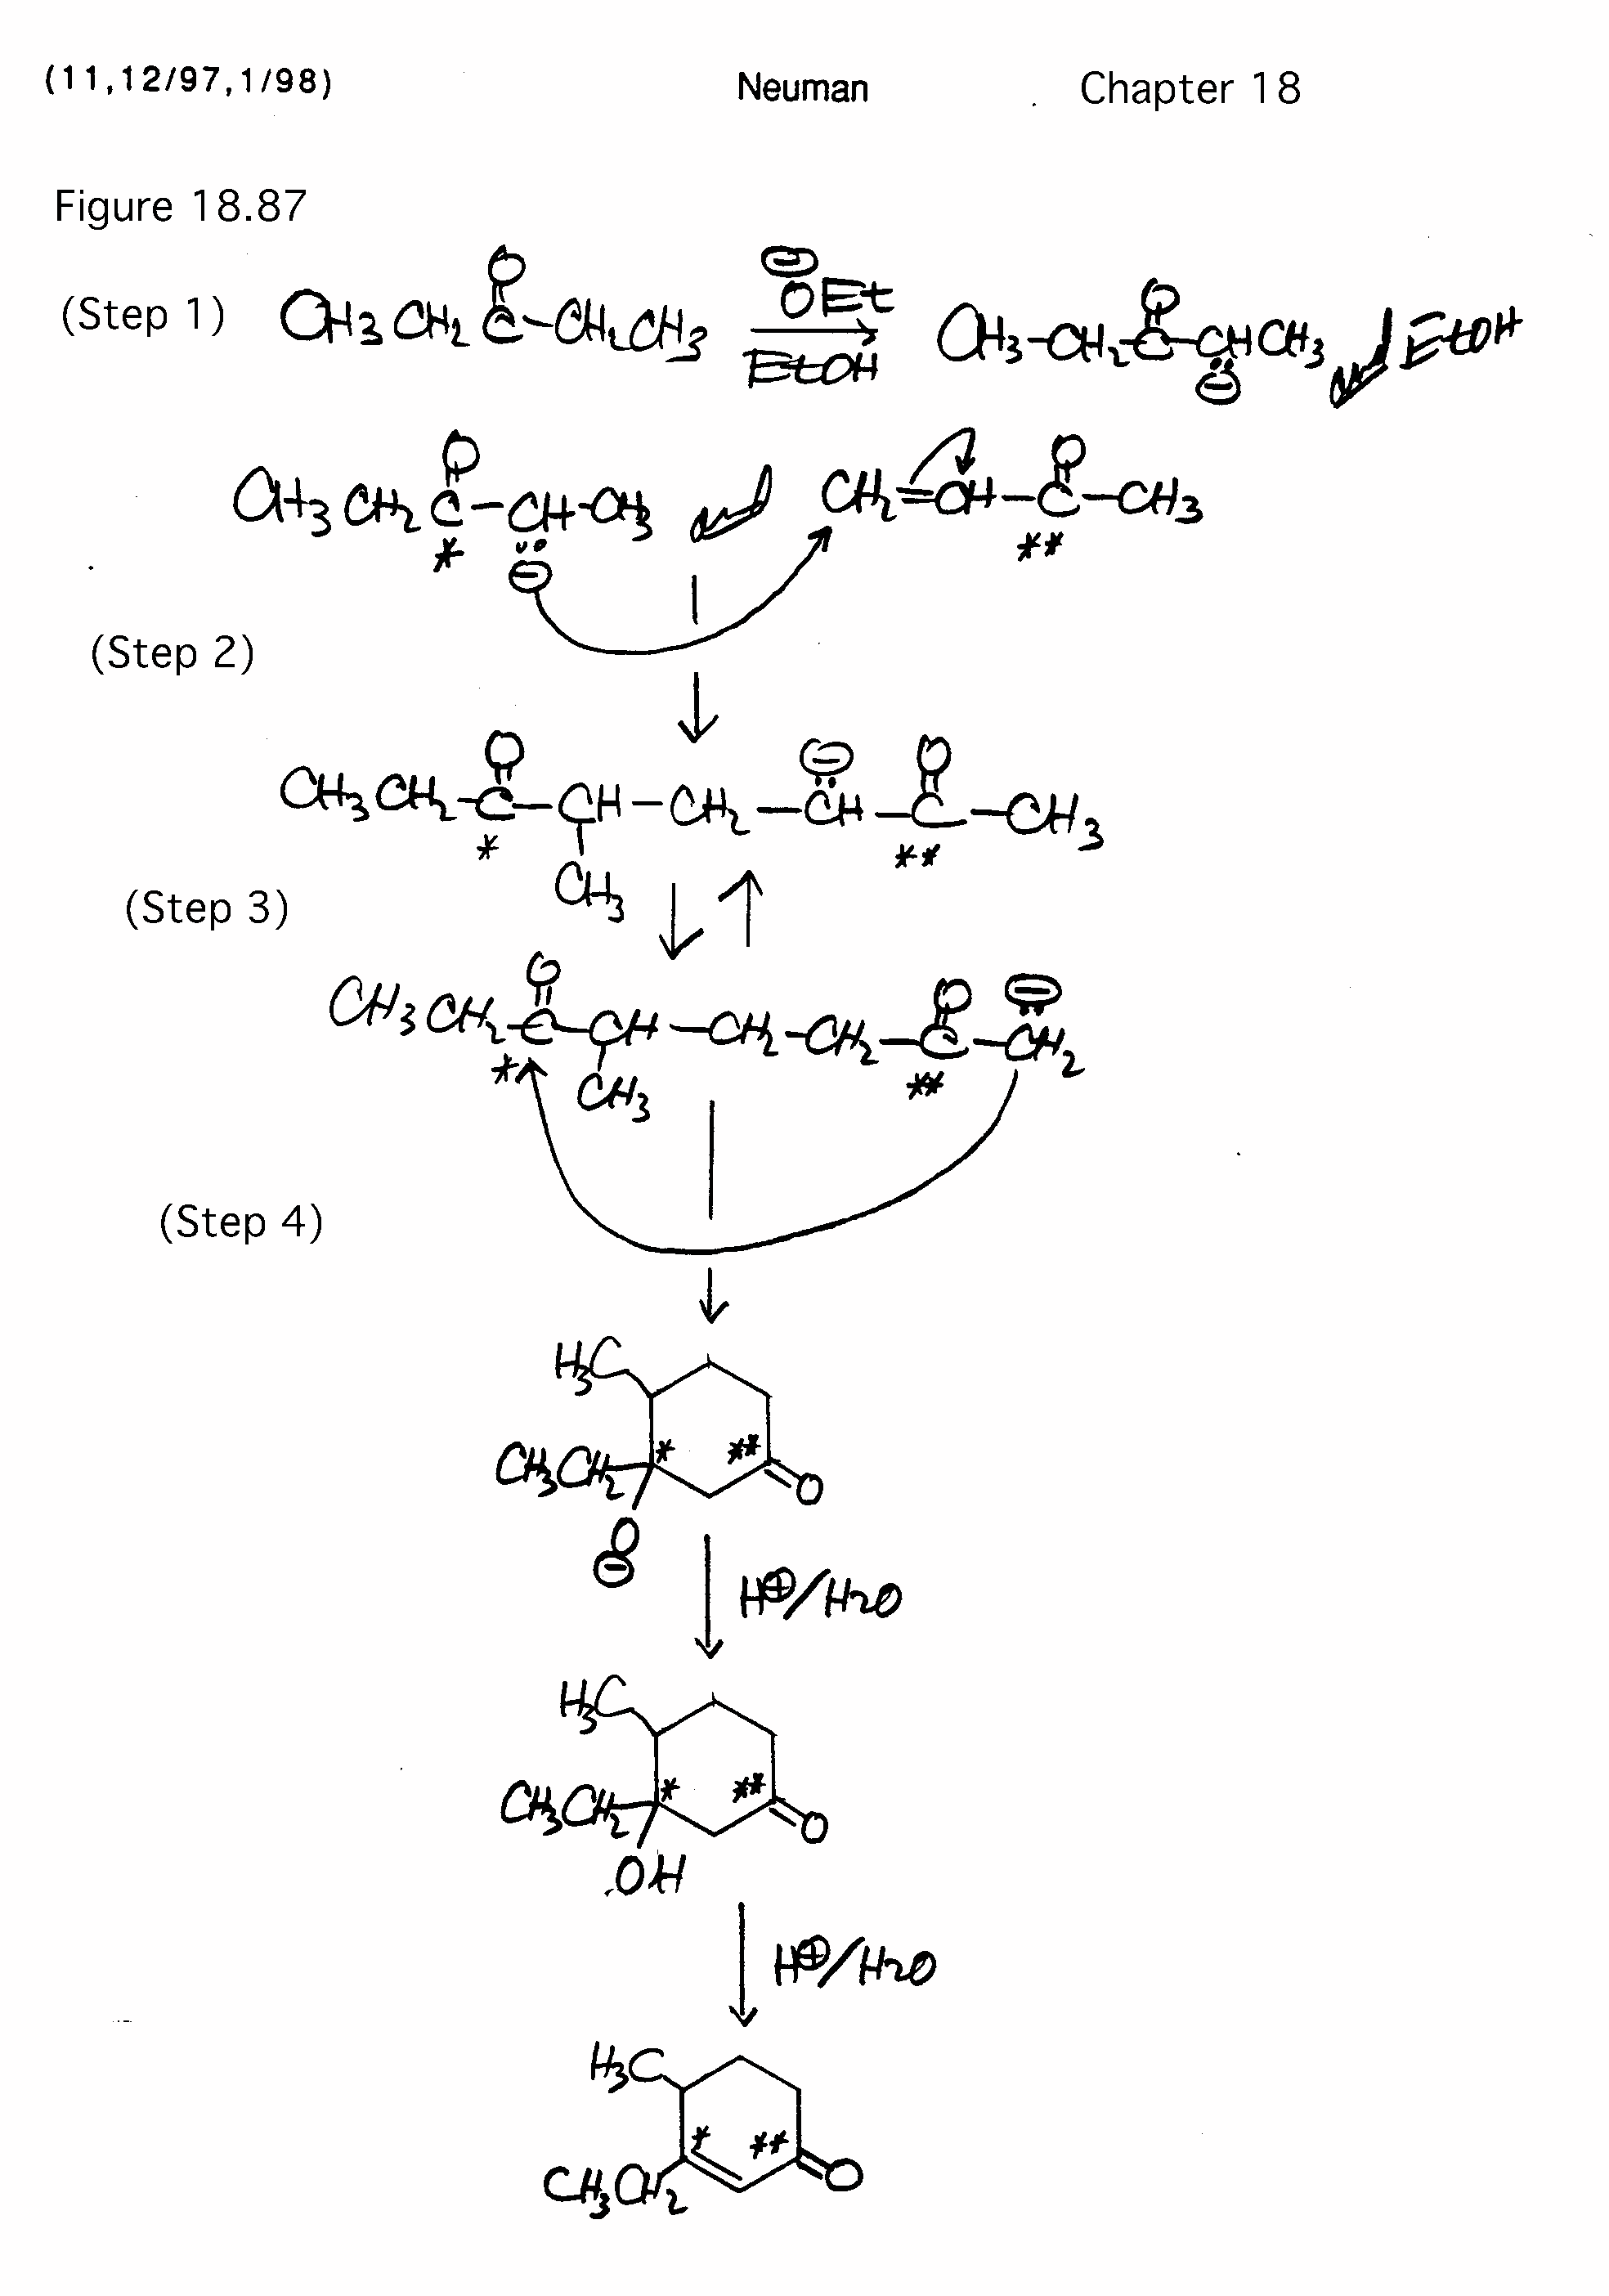 (11,12/97,1/98) Neuman Chapter 18
Figure 18.87
O ⊖ O
(Step 1) CH3CH2C-CH2CH3 OEt CH3-CH2-C-CHCH3 EtOH
EtOH ⊖
O O
CH3CH2C-CH-CH3 CH2=CH-C-CH3
* ⊖ **
(Step 2)
O ⊖ O
CH3CH2-C-CH-CH2-CH-C-CH3
* **
CH3
(Step 3)
O O ⊖
CH3CH2-C-CH-CH2-CH2-C-CH2
* CH3 **
(Step 4)
H3C
CH3CH2 * ** O
O
⊖
H⊕/H2O
H3C
CH3CH2 * ** O
OH
H⊕/H2O
H3C
* **
CH3CH2 O